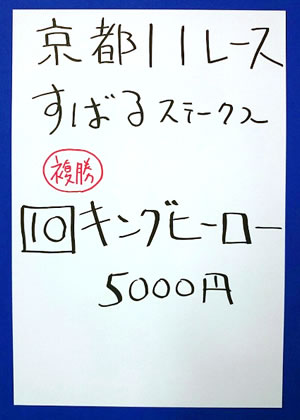 京都11レース
すばるステークス
複勝
10 キングヒーロー
5000円